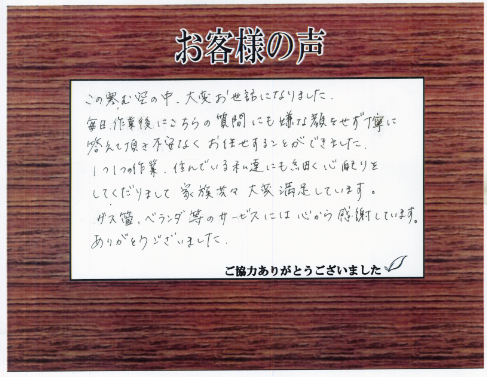 お客様の声
この寒む空の中、大変お世話になりました。
毎日、作業後にこちらの質問にも嫌な顔をせず丁寧に
答えて頂き不安なくお任せすることができました。
1つ1つの作業、住んでいる私達にも細く心配りを
してくだりまして家族共々大変満足しています。
ガス管、ベランダ等のサービスには心から感謝しています。
ありがとうございました。
ご協力ありがとうございました